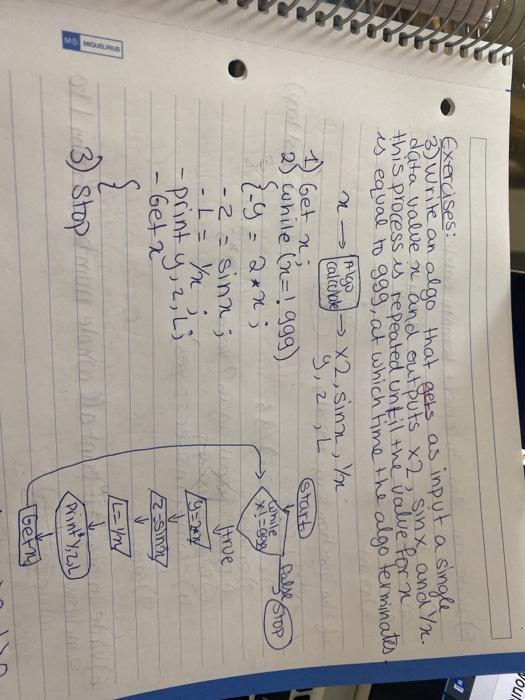 Exercises:
3) Write an algo that gets as input a single
data value x and outputs x2, sin x and 1/x.
this process is repeated until the value for x
is equal to 999, at which time the algo terminates.
x → Algo calculate → x2, sinx, 1/x
y, z, L
1) Get x;
2) while (x=! 999)
{ -y = 2*x;
- z = sinx;
- L = 1/x;
- print y, z, L;
- Get x
{
3) Stop
Start
while
x!=999
false
STOP
true
y=2*x
z=sinx
L=1/x
Print y,z,L
Get x
MIQUELRIUS